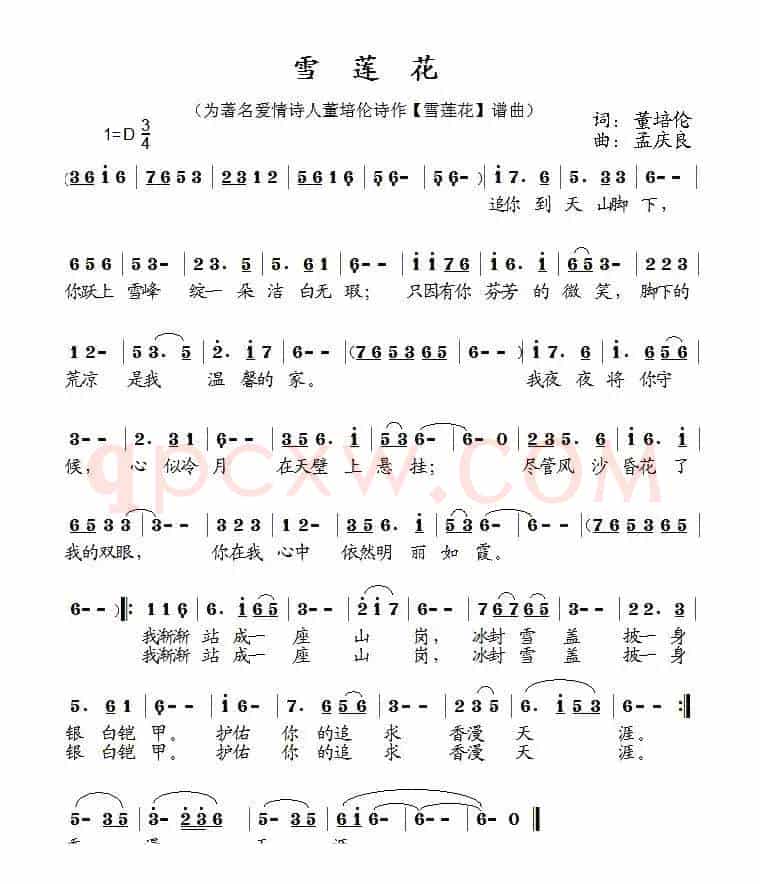 雪 莲 花
（为著名爱情诗人董培伦诗作【雪莲花】谱曲）
1=D 3/4
词：董培伦
曲：孟庆良
(3 6 i 6 | 7 6 5 3 | 2 3 1 2 | 5 6 1 6 | 5 6 - | 5 6 - ) | i 7. 6 | 5. 3 3 | 6 - - |
追你 到 天 山脚 下，
6 5 6 | 5 3 - | 2 3. 5 | 5. 6 1 | 6 - - | i i 7 6 | i 6. i | 6 5 3 - | 2 2 3 |
你跃上 雪峰 绽一 朵 洁 白无 瑕； 只因有你 芬芳 的 微 笑，脚下的
1 2 - | 5 3. 5 | 2. i 7 | 6 - - | (7 6 5 3 6 5 | 6 - - ) | i 7. i | 6 5 6 |
荒凉 是我 温 馨的 家。 我夜 夜 将 你守
3 - - | 2. 3 1 | 6 - - | 3 5 6. i | 5 3 6 - | 6 - 0 | 2 3 5. 5 | i 6. i |
候， 心 似冷 月 在天壁 上 悬 挂； 尽管风 沙 昏花 了
qpcxw.COM
6 5 3 3 | 3 - - | 3 2 3 | 1 2 - | 3 5 6. i | 5 3 6 - | 6 - - | (7 6 5 3 6 5 |
我的双眼， 你在我 心中 依然明 丽 如 霞。
6 - - ) ‖: 1 1 6 | 6. i 6 5 | 3 - - | 2 i 7 | 6 - - | 7 6 7 6 5 | 3 - - | 2 2. 3 |
我渐渐 站 成一 座 山 岗， 冰封 雪 盖 披一 身
我渐渐 站 成一 座 山 岗， 冰封 雪 盖 披一 身
5. 6 1 | 6 - - | i 6 - | 7. 6 5 | 3 - - | 2 3 5 | 6. i 5 3 | 6 - - :‖
银 白铠 甲。 护佑 你 的追 求 香漫 天 涯。
银 白铠 甲。 护佑 你 的追 求 香漫 天 涯。
5 - 3 5 | 3 - 2 3 6 | 5 - 3 5 | 6 i 6 - | 6 - 0 ‖